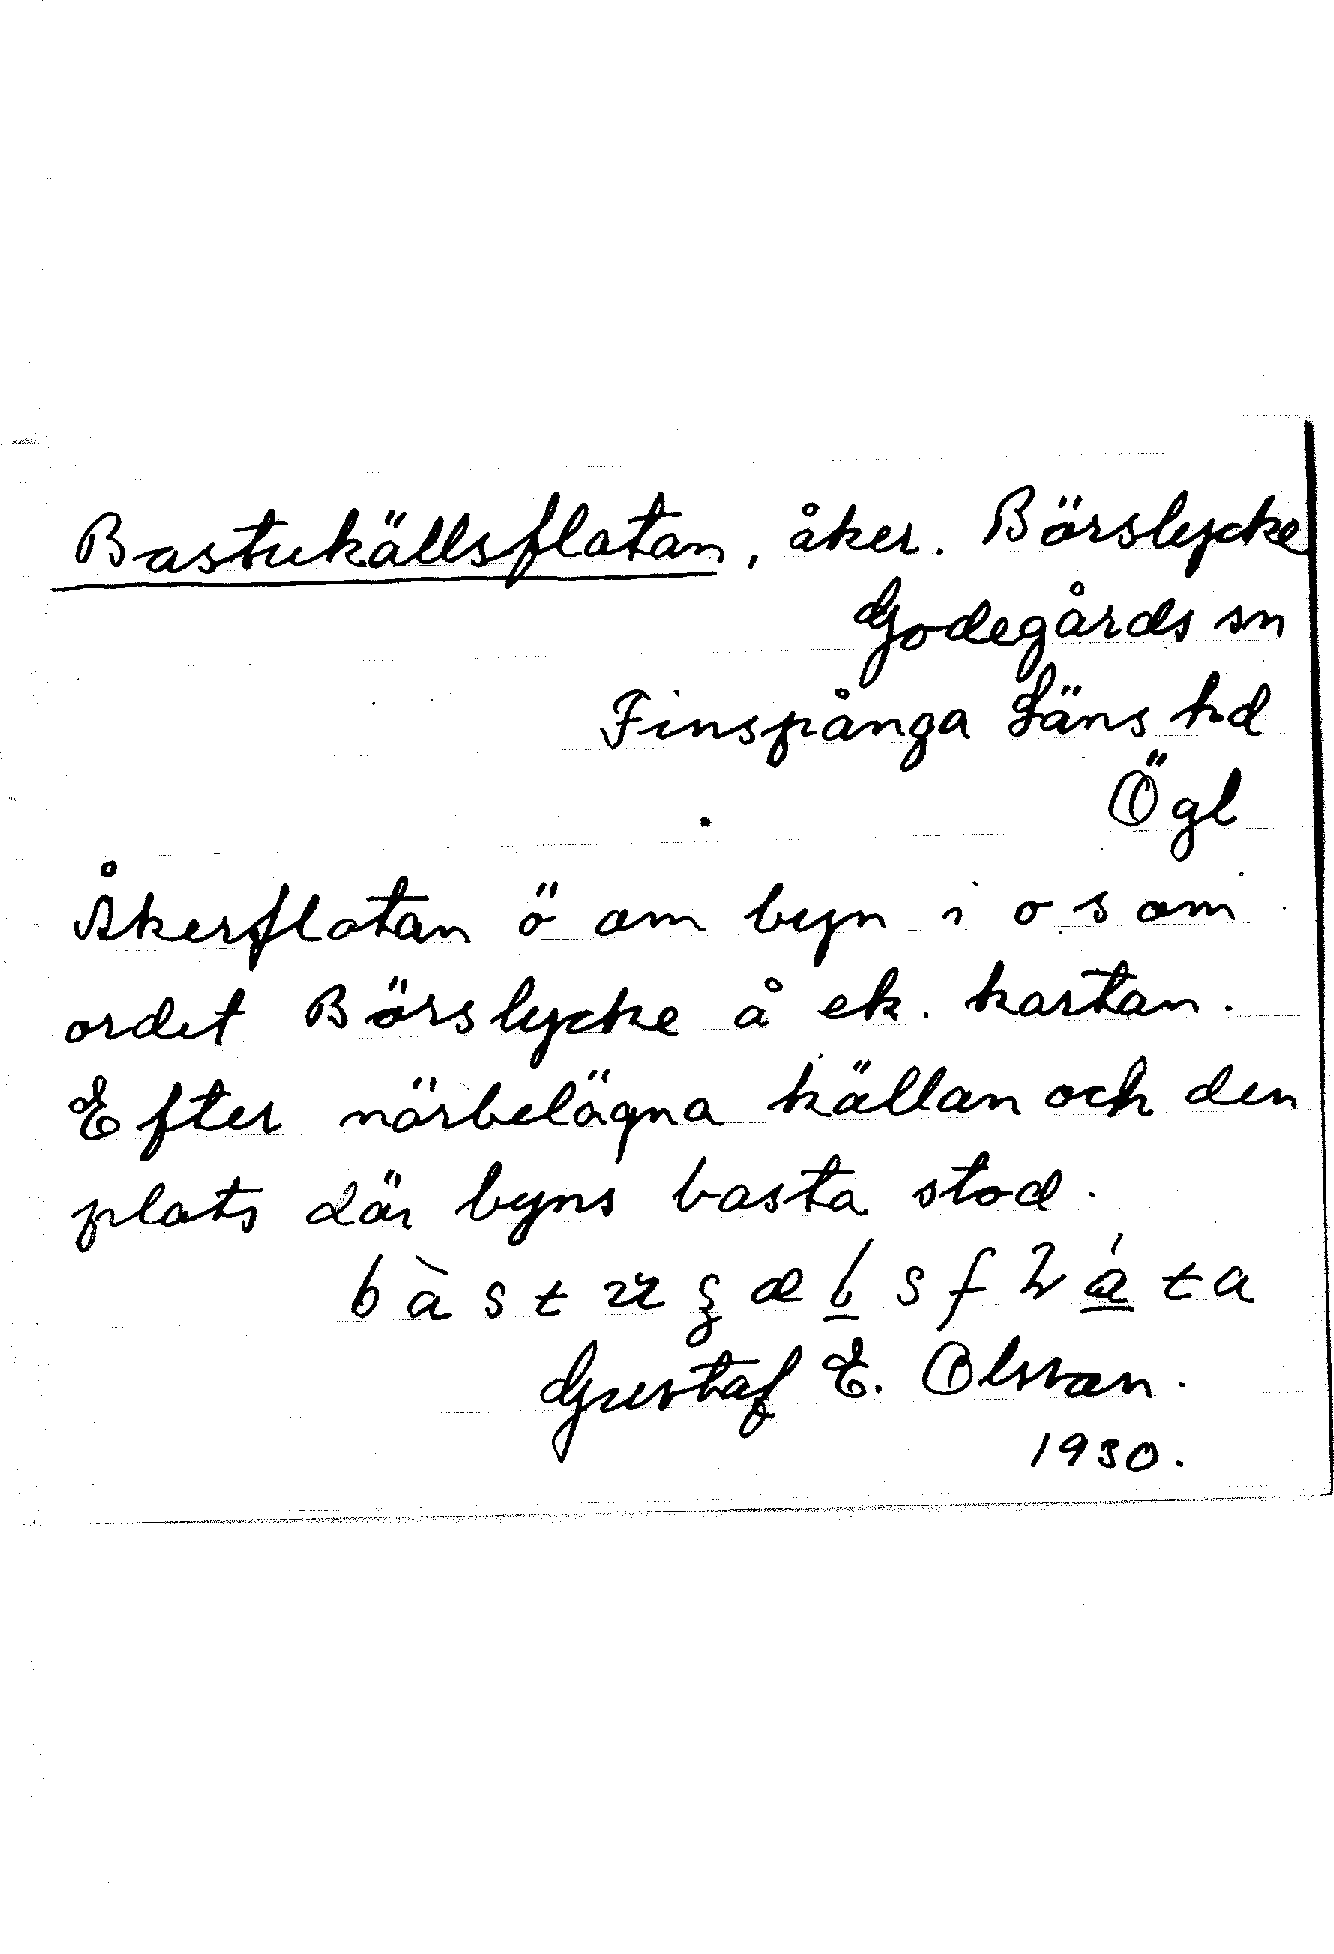 Bastukällsflatan, åker. Börslycke
Godegårds sn
Finspånga Läns hd
Ögl
Åkerflatan ö om byn i o s om
ordet Börslycke å ek. kartan.
Efter närbelägna källan och den
plats där byns basta stod.
Gustaf E. Olsson.
1930.